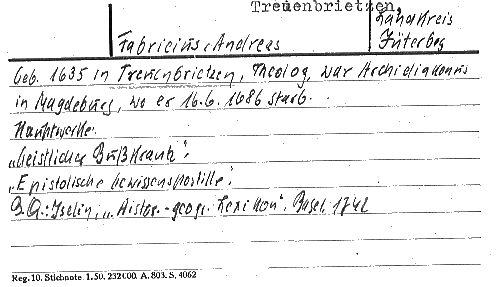 Treuenbrietzen,
Landkreis
Jüterbog
Fabricius, Andreas
Geb. 1635 in Treuenbrietzen, Theolog, war Archidiakonus
in Magdeburg, wo er 16.6.1686 starb.
Hauptwerke:
„Geistlicher Bußkrank".
„Epistolische Gewissenspostille".
B.Q.: Iselin, „Histor.-geogr. Lexikon". Basel, 1742
Reg. 10. Stichnote 1. 50. 232000. A. 803. S. 4062